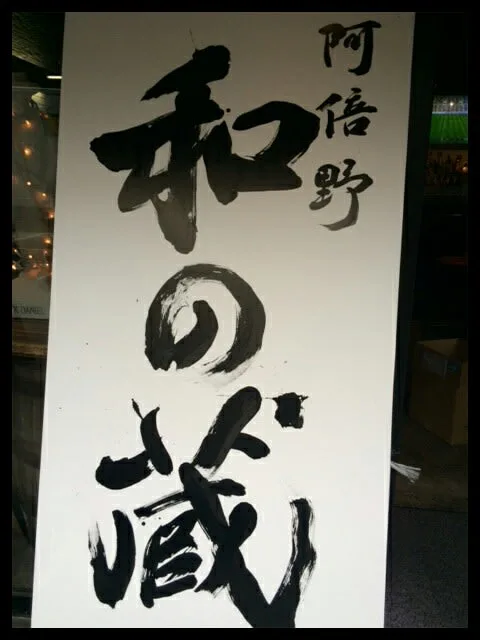 阿倍野
和の蔵